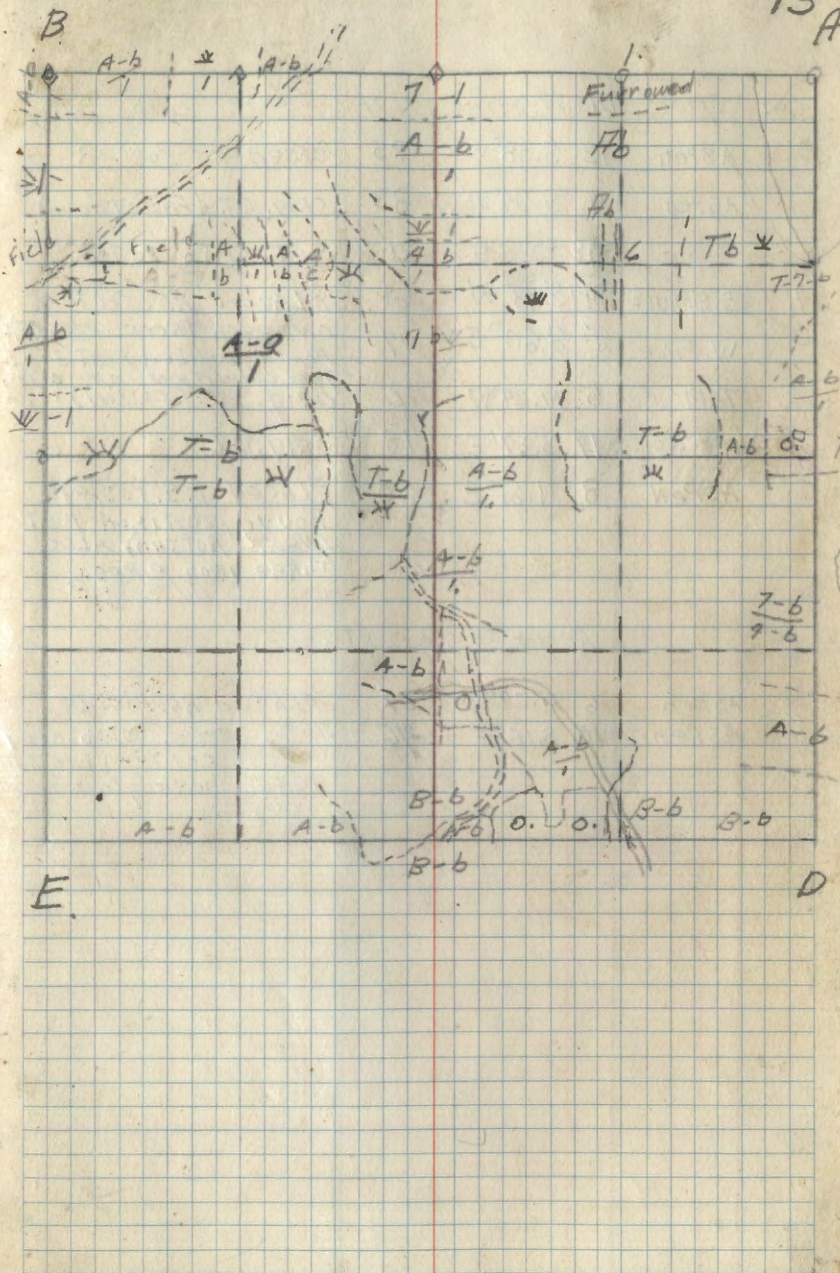 13
B
A
A-b
1
1
A-b
1.
A-b
7 1
Furrowed
A-b
1
Ab
Ab
-1
Field
Field
A
b
1
A
b
A
1
1
A b
1
6
Tb
T-7-b
A-b
1
A-a
1
7 b
A-b
-1
T-b
T-b
T-b
A-b
1.
T-b
A-b
0.
A-b
1.
7-b
9-b
A-b
0
A-b
A-b
1
B-b
A-b
A-b
A-b
0.
0.
B-b
B-b
B-b
E.
D